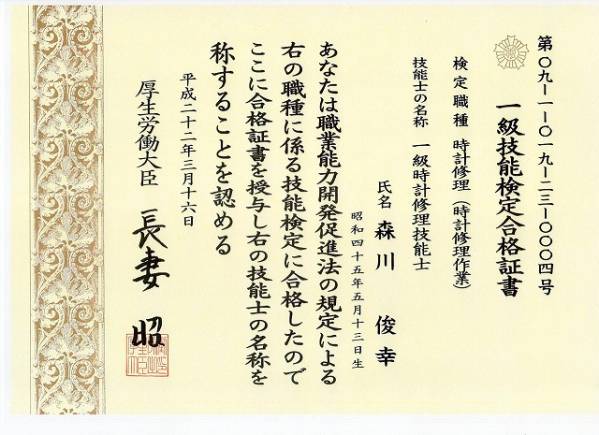 第〇九ー一ー〇一九ー二三ー〇〇〇四号
一級技能検定合格証書
検定職種　時計修理（時計修理作業）
技能士の名称　一級時計修理技能士
氏名　森川　俊幸
昭和四十五年五月十三日生
あなたは職業能力開発促進法の規定による
右の職種に係る技能検定に合格したので
ここに合格証書を授与し右の技能士の名称を
称することを認める
平成二十二年三月十六日
厚生労働大臣　長妻　昭